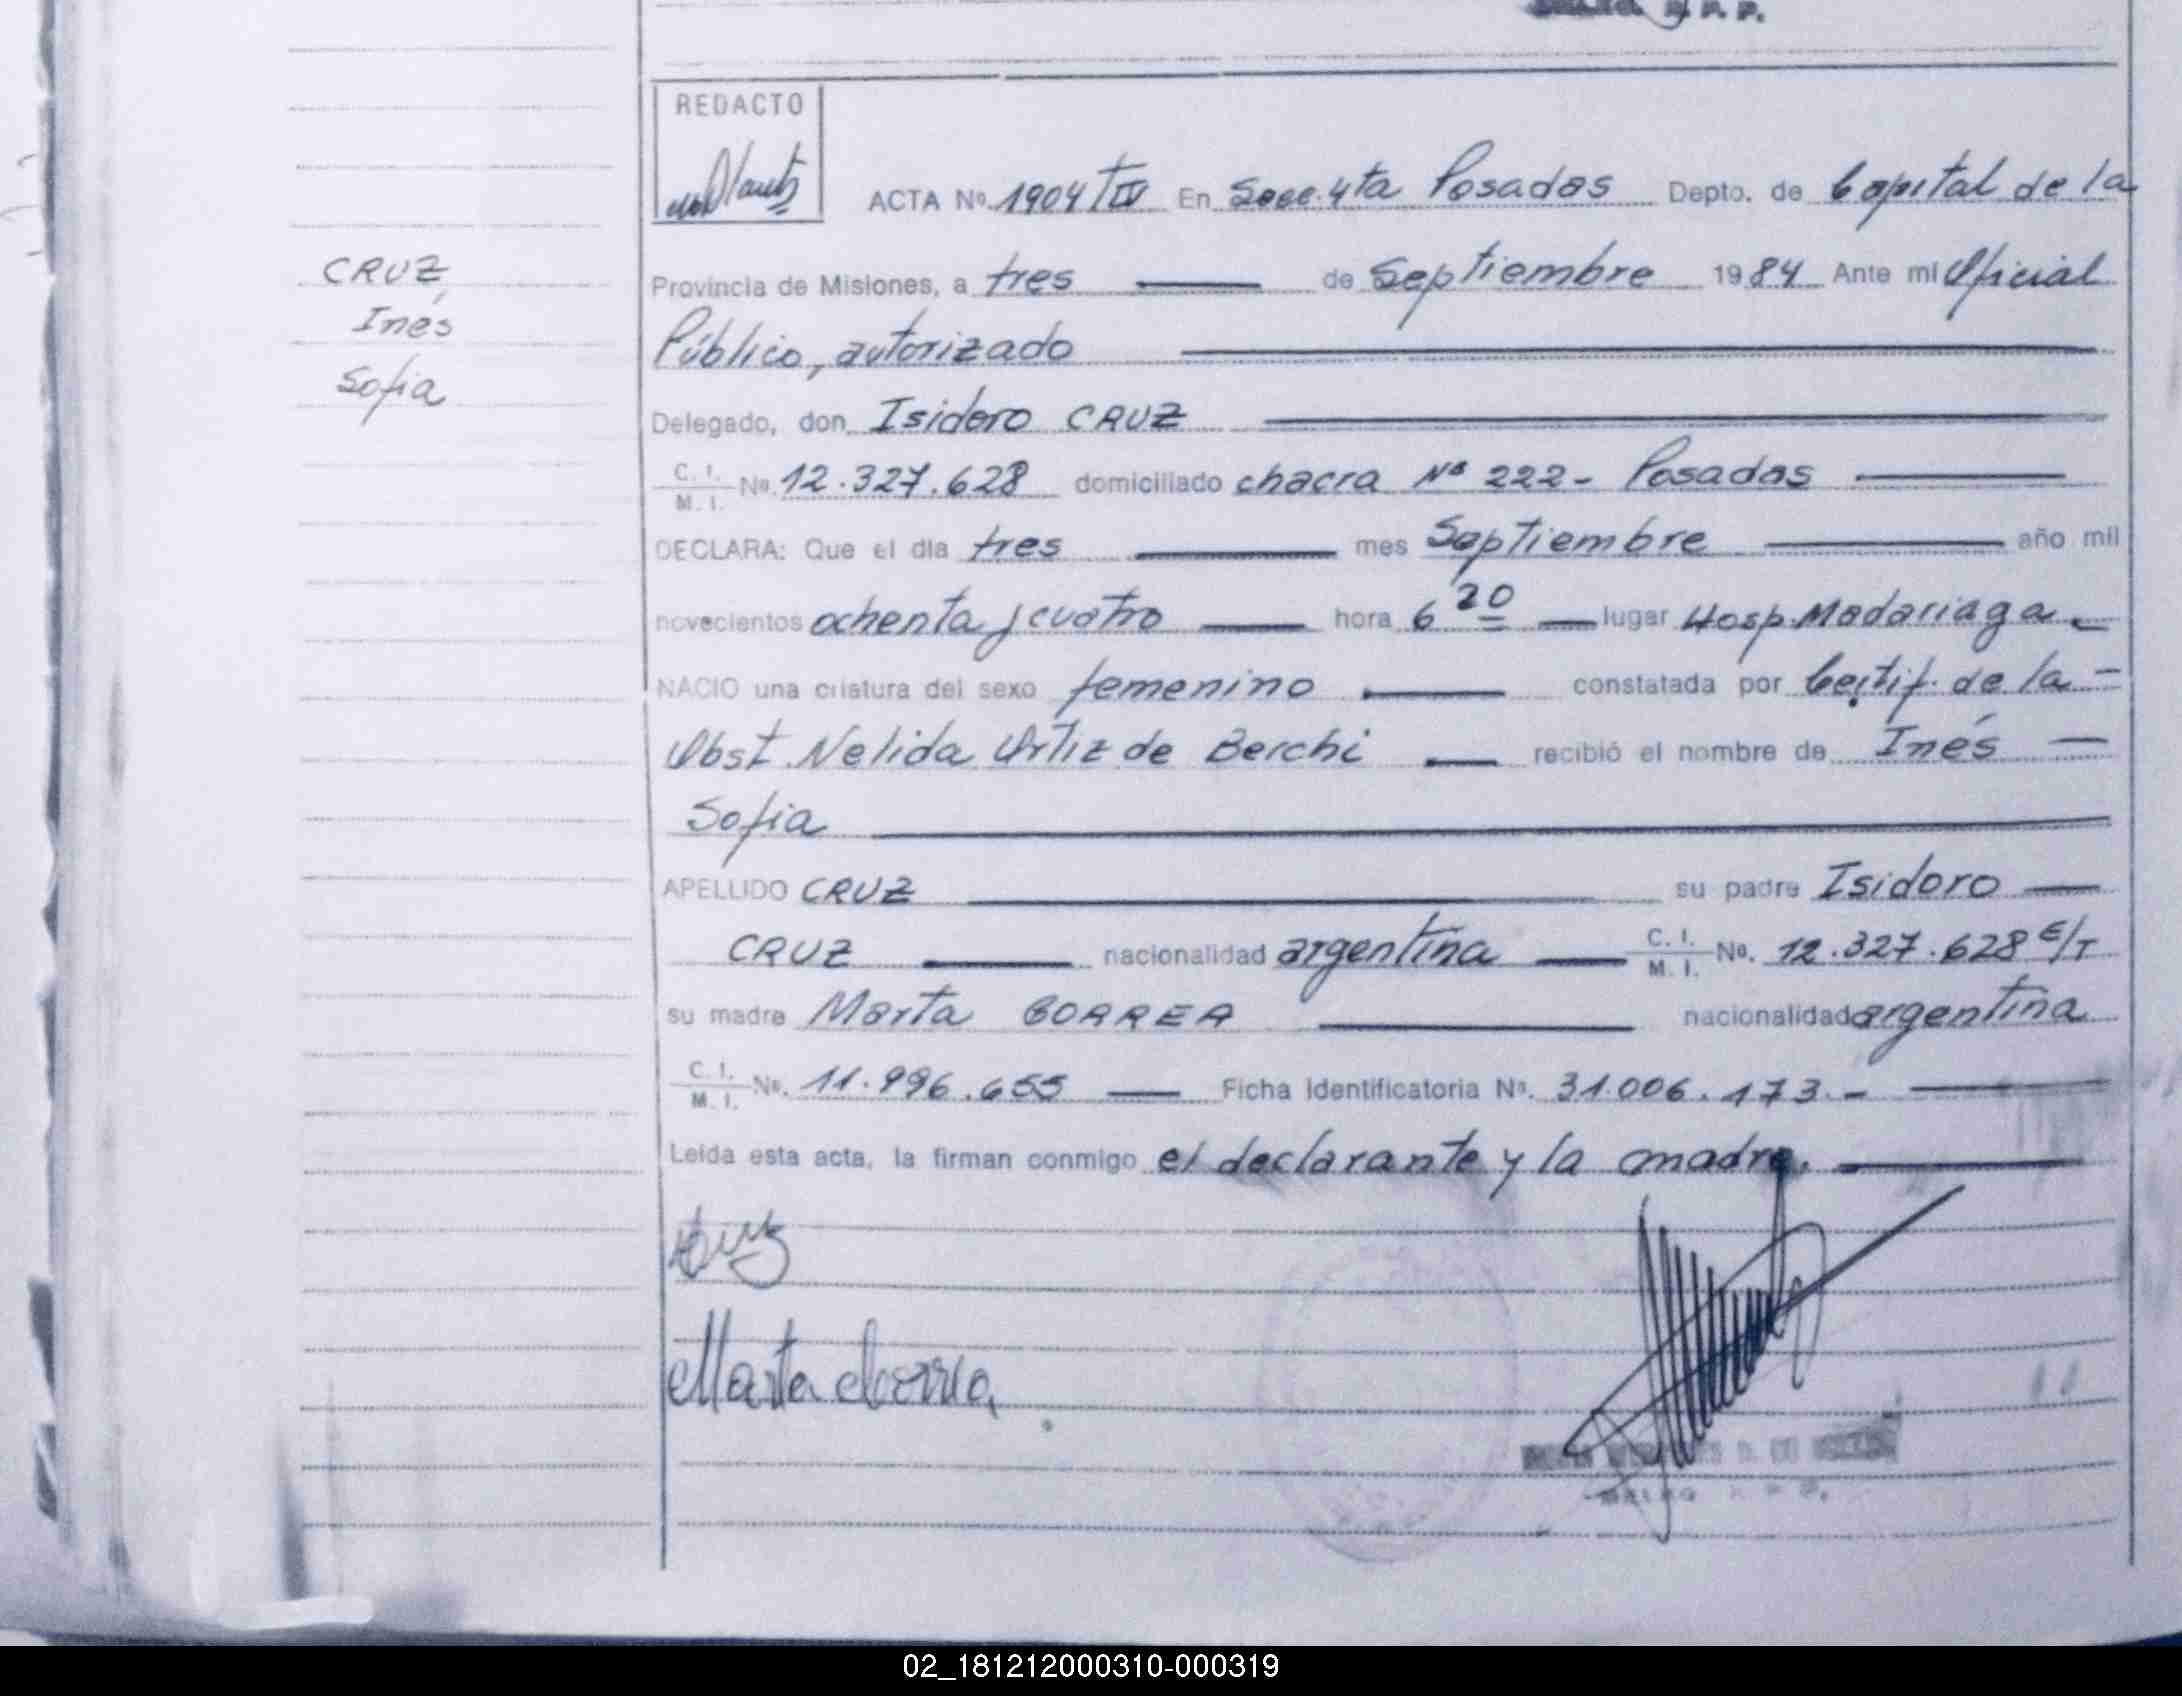 REDACTO
ACTA Nº 1904 TIV En Secc. 4ta Posadas Depto. de Capital de la
CRUZ,
Inés
Sofia
Provincia de Misiones, a tres de Septiembre 1984 Ante mi Oficial
Público, autorizado
Delegado, don Isidoro CRUZ
C. I. / M. I. Nº 12.327.628 domiciliado chacra Nº 222- Posadas
DECLARA: Que el dia tres mes Septiembre año mil
novecientos ochenta y cuatro hora 6 20 lugar Hosp. Madariaga
NACIO una criatura del sexo femenino constatada por Certif. de la
Obst. Nelida Ortiz de Berchi recibió el nombre de Inés
Sofia
APELLIDO CRUZ su padre Isidoro
CRUZ nacionalidad argentina C. I. / M. I. Nº. 12.327.628 E/T
su madre Marta CORREA nacionalidad argentina
C. I. / M. I. Nº. 11.996.655 Ficha Identificatoria Nº. 31.006.173.-
Leida esta acta, la firman conmigo el declarante y la madre.
Cruz
Marta Correa
02_181212000310-000319